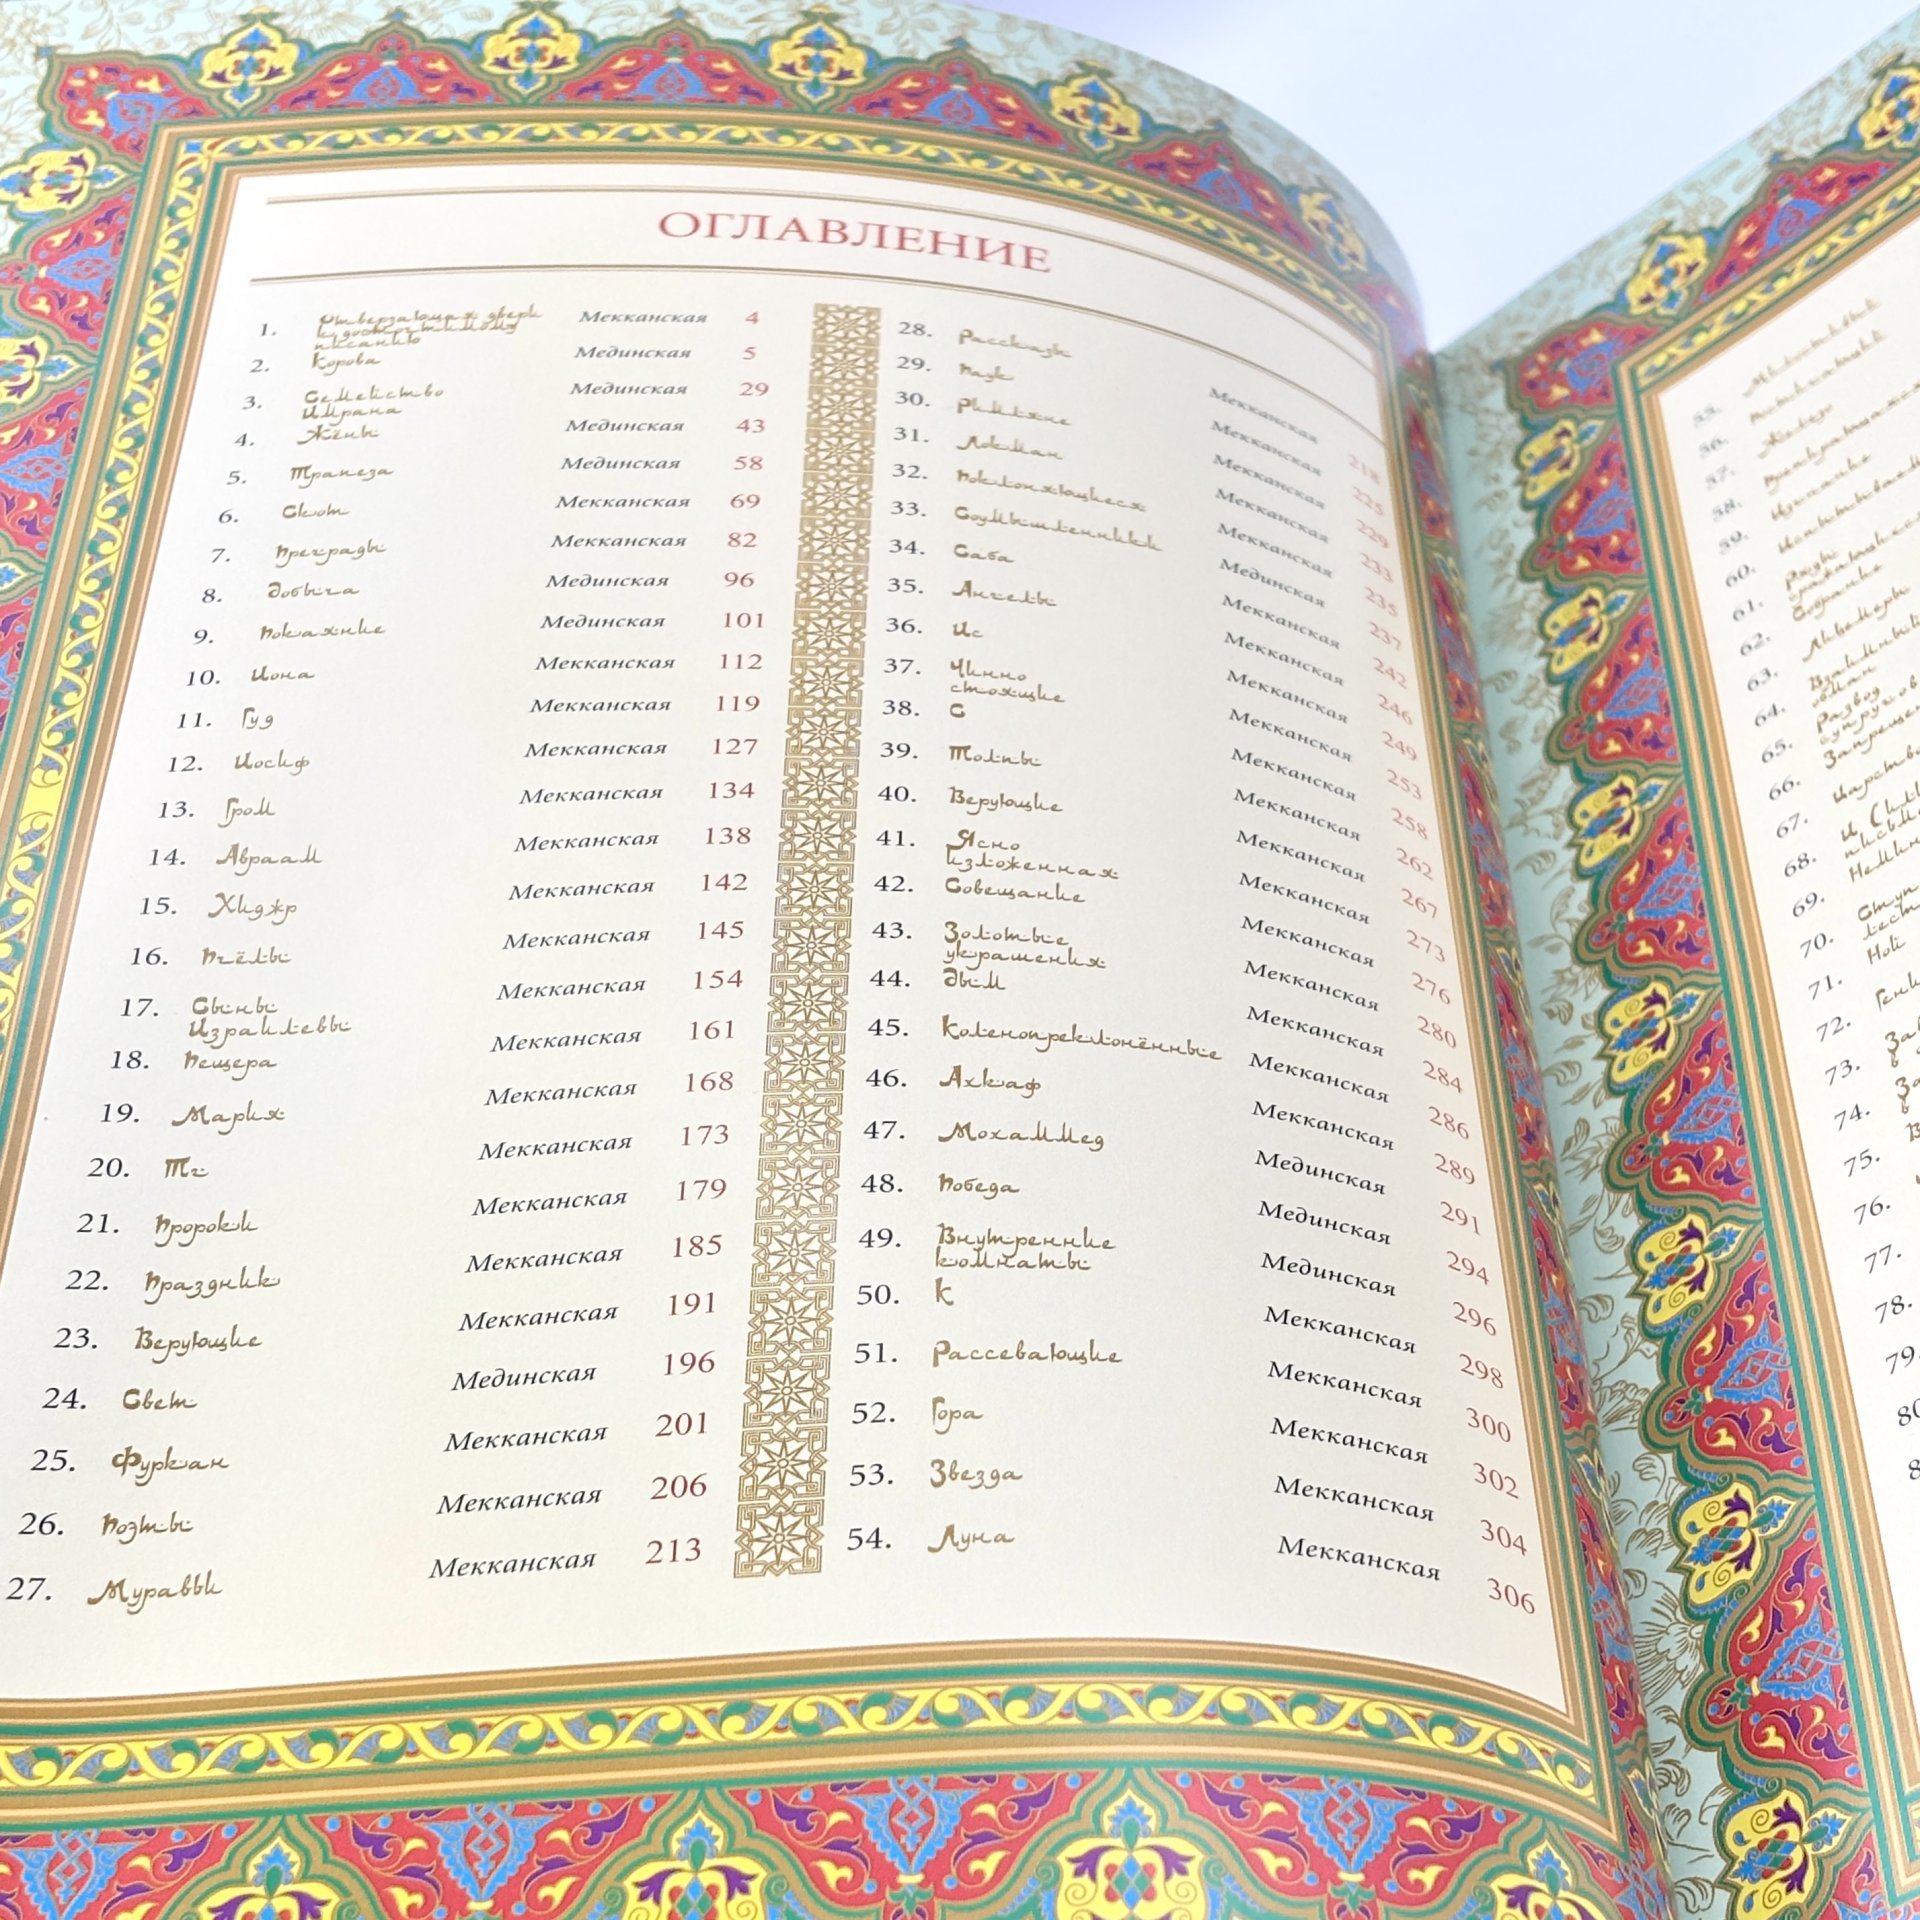 ОГЛАВЛЕНИЕ
1. Отверзающая двери к досточтимому писанию Мекканская 4
2. Корова Мединская 5
3. Семейство Имрана Мединская 29
4. Жёны Мединская 43
5. Трапеза Мединская 58
6. Скот Мекканская 69
7. Преграды Мекканская 82
8. Добыча Мединская 96
9. Покаяние Мединская 101
10. Иона Мекканская 112
11. Гуд Мекканская 119
12. Иосиф Мекканская 127
13. Гром Мекканская 134
14. Авраам Мекканская 138
15. Хиджр Мекканская 142
16. Пчёлы Мекканская 145
17. Сыны Израилевы Мекканская 154
18. Пещера Мекканская 161
19. Мария Мекканская 168
20. Тг Мекканская 173
21. Пророки Мекканская 179
22. Праздник Мекканская 185
23. Верующие Мекканская 191
24. Свет Мединская 196
25. Фуркан Мекканская 201
26. Поэты Мекканская 206
27. Муравьи Мекканская 213
28. Рассказы Мекканская 218
29. Паук Мекканская 225
30. Римляне Мекканская 229
31. Локман Мекканская 233
32. Поклоняющиеся Мекканская 235
33. Соумышленники Мединская 237
34. Саба Мекканская 242
35. Ангелы Мекканская 246
36. Ис Мекканская 249
37. Чинно стоящие Мекканская 253
38. С Мекканская 258
39. Толпы Мекканская 262
40. Верующие Мекканская 267
41. Ясно изложенная Мекканская 273
42. Совещание Мекканская 276
43. Золотые украшения Мекканская 280
44. Дым Мекканская 284
45. Коленопреклонённые Мекканская 286
46. Ахкаф Мекканская 289
47. Мохаммед Мединская 291
48. Победа Мединская 294
49. Внутренние комнаты Мединская 296
50. К Мекканская 298
51. Рассевающие Мекканская 300
52. Гора Мекканская 302
53. Звезда Мекканская 304
54. Луна Мекканская 306
55.
56.
57. Железо
58.
59.
60.
61.
62. Собрание
63.
64.
65. Развод
66.
67.
68.
69.
70.
71. Ной
72.
73.
74.
75.
76.
77.
78.
79.